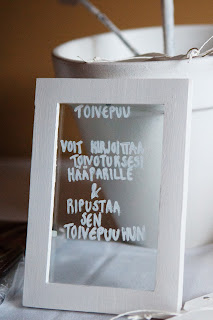 TOIVEPUU
VOIT KIRJOITTAA
TOIVOTUKSESI
HÄÄPARILLE
&
RIPUSTAA
SEN
TOIVEPUUHUN